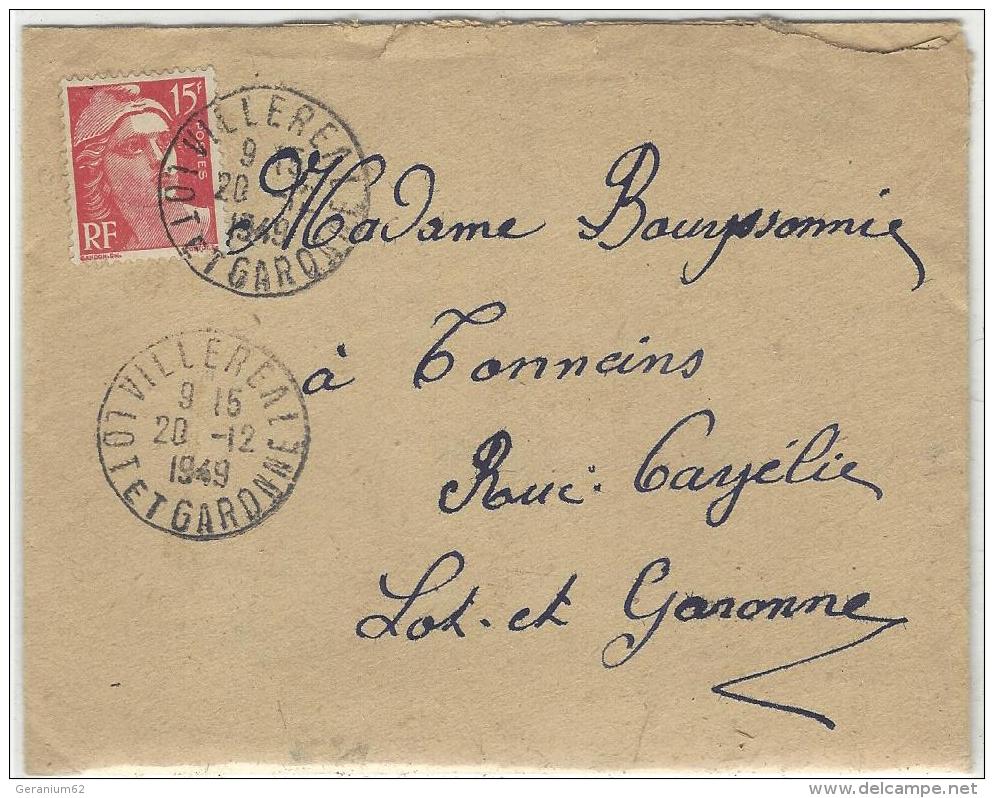 15F
POSTES
RF
VILLEREAL
9 15
20 -12
1949
LOT ET GARONNE
Madame Bouyssonnie
à Tonneins
Rue: Cayélie
Lot. et Garonne
VILLEREAL
9 15
20 -12
1949
LOT ET GARONNE
Geranium62
http://www.delcampe.net